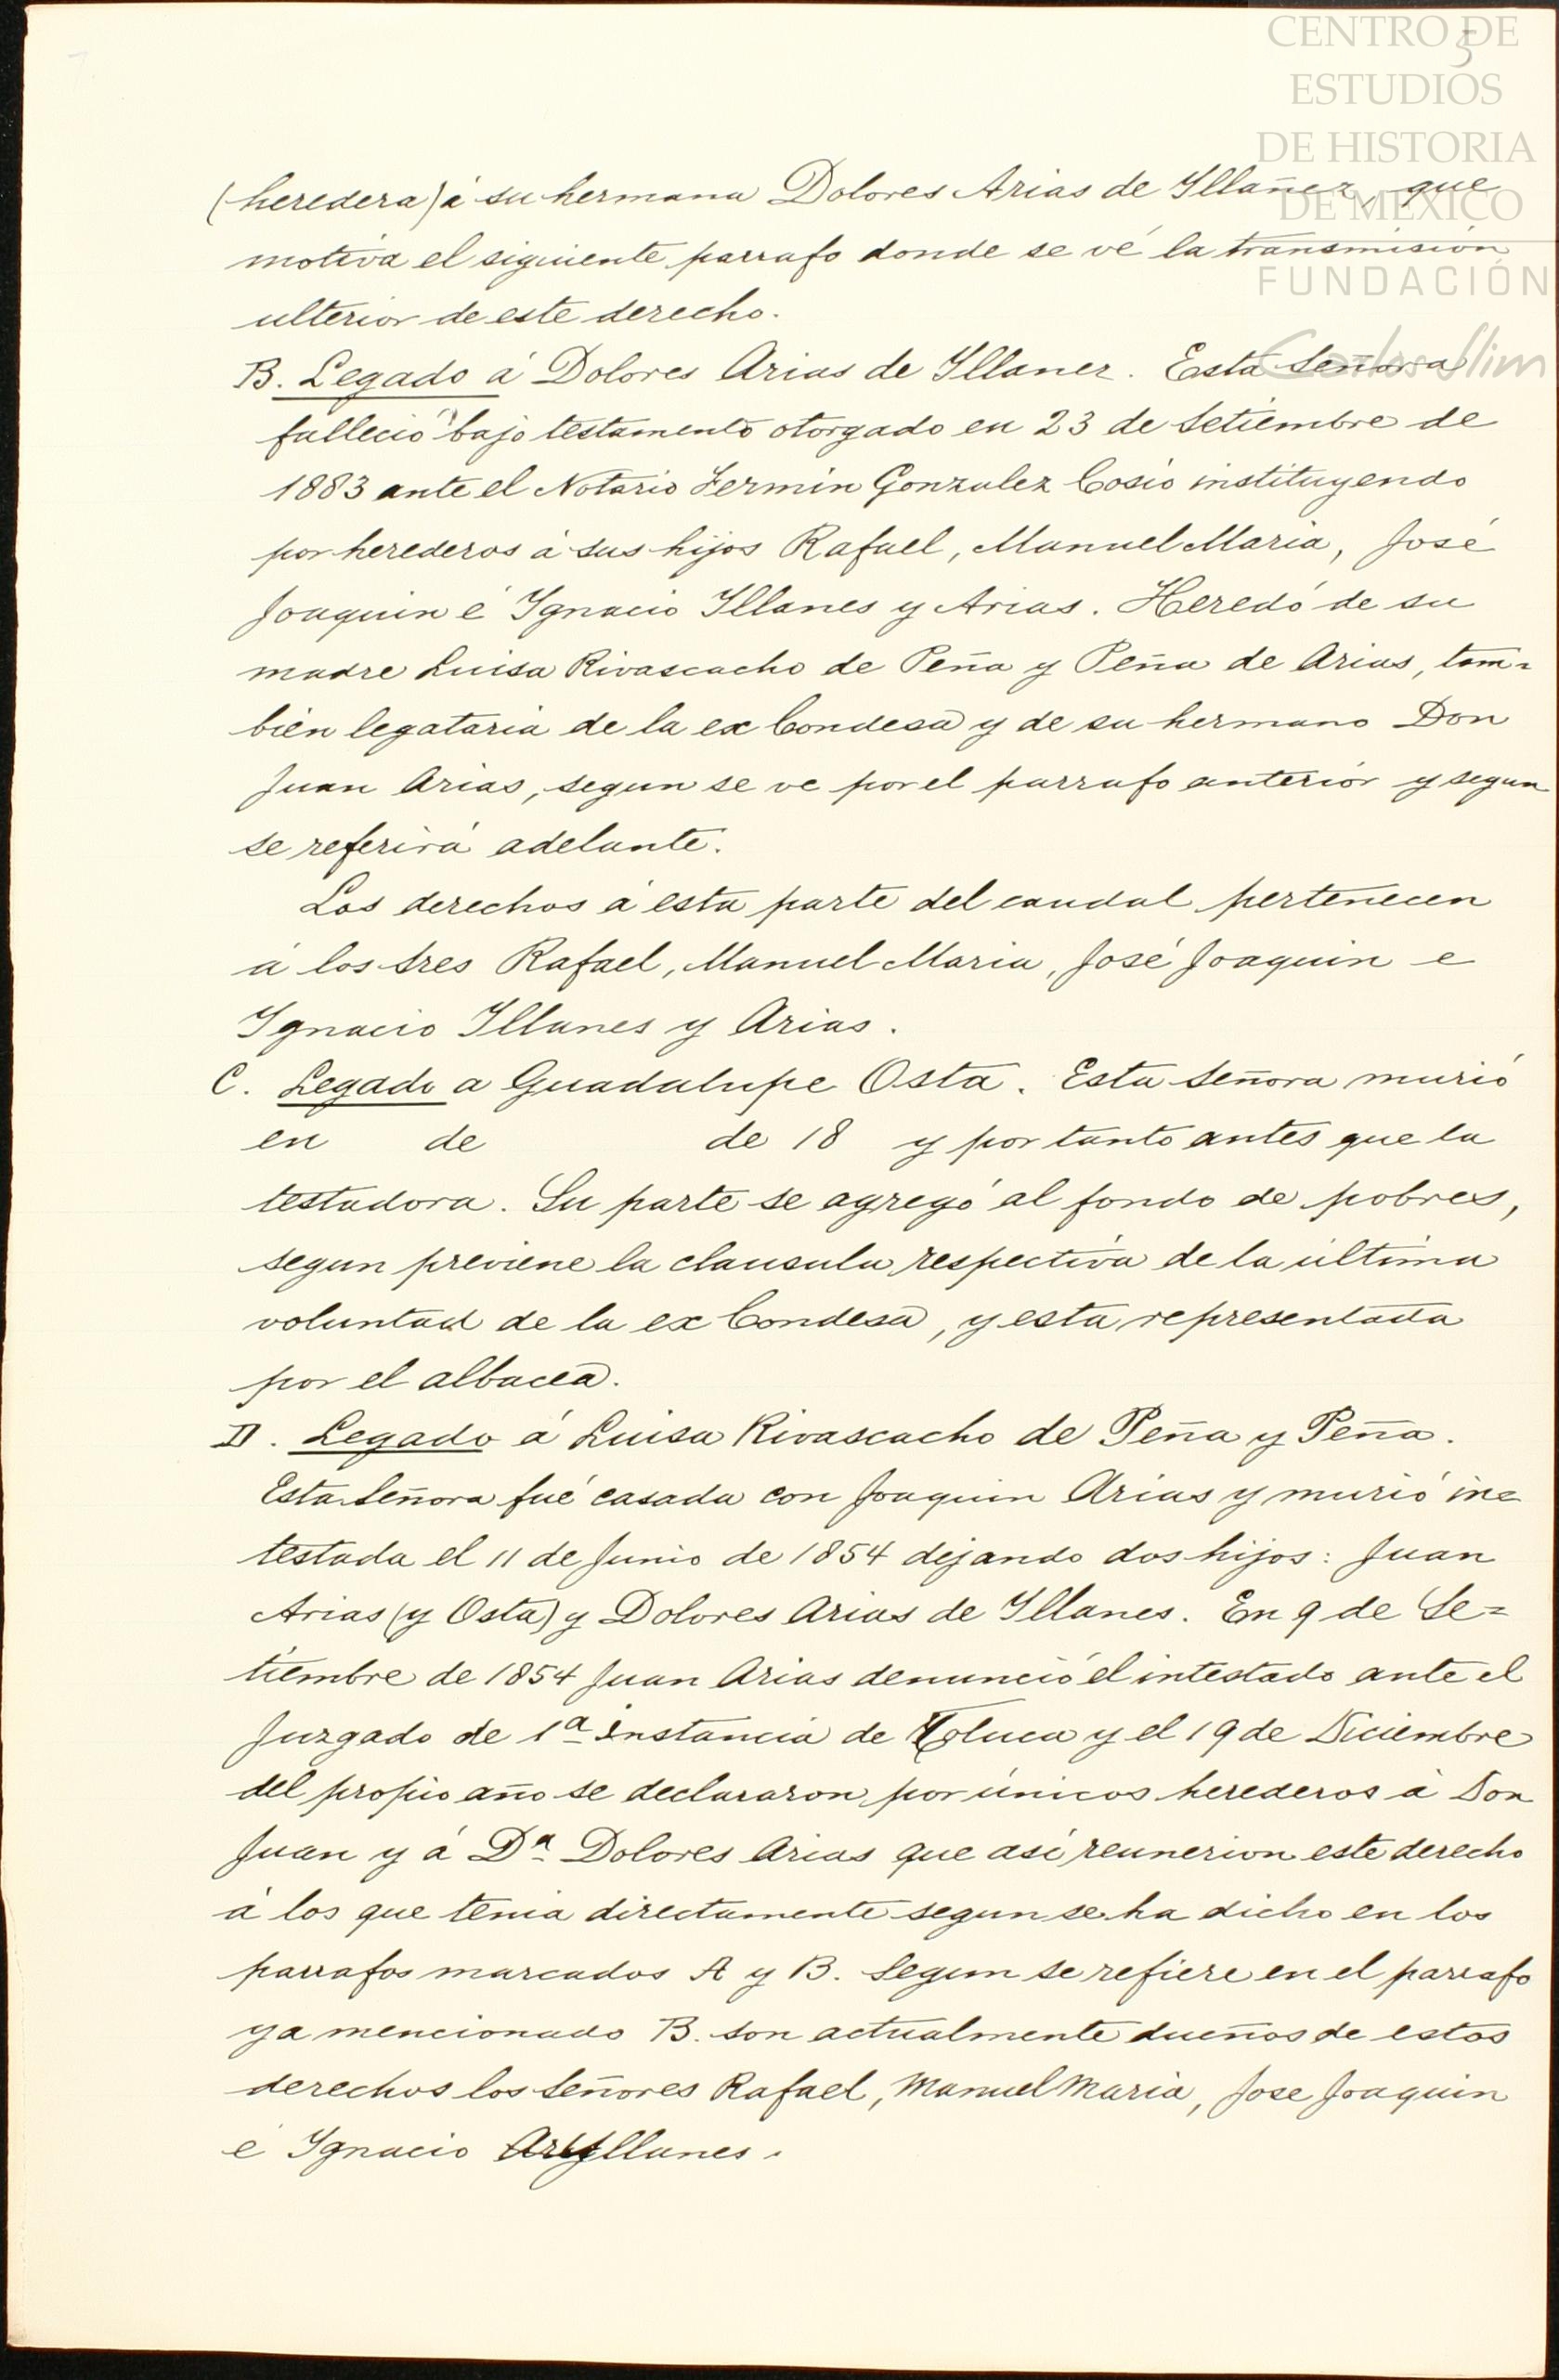 CENTRO DE
5
ESTUDIOS
DE HISTORIA
DE MEXICO
FUNDACIÓN
Carlos Slim
(heredera) á su hermana Dolores Arias de Yllañez, que
motiva el siguiente parrafo donde se vé la transmisión
ulterior de este derecho.
B. Legado á Dolores Arias de Yllanez. Esta Señora
falleció bajo testamento otorgado en 23 de Setiembre de
1883 ante el Notario Fermin Gonzalez Cosio instituyendo
por herederos á sus hijos Rafael, Manuel Maria, José
Joaquin é Ygnacio Yllanes y Arias. Heredó de su
madre Luisa Rivascacho de Peña y Peña de Arias, tam=
bién legataria de la ex Condesa y de su hermano Don
Juan Arias, segun se ve por el parrafo anterior y segun
se referirá adelante.
Los derechos á esta parte del caudal pertenecen
á los tres Rafael, Manuel Maria, José Joaquin e
Ygnacio Yllanes y Arias.
C. Legado a Guadalupe Osta. Esta Señora murió
en de de 18 y por tanto antes que la
testadora. Su parte se agregó al fondo de pobres,
segun previene la clausula respectiva de la ultima
voluntad de la ex Condesa, y esta representada
por el albacea.
D. Legado á Luisa Rivascacho de Peña y Peña.
Esta Señora fué casada con Joaquin Arias y murió in=
testada el 11 de Junio de 1854 dejando dos hijos: Juan
Arias (y Osta) y Dolores Arias de Yllanes. En 9 de Se=
tiembre de 1854 Juan Arias denunció el intestado ante el
Juzgado de 1ª instancia de Toluca y el 19 de Diciembre
del propio año se declararon por únicos herederos á Don
Juan y á Dª Dolores Arias que así reunerion este derecho
á los que tenia directamente segun se ha dicho en los
parrafos marcados A y B. Segun se refiere en el parrafo
ya mencionado B. son actualmente dueños de estos
derechos los Señores Rafael, Manuel Maria, Jose Joaquin
é Ygnacio Yllanes.